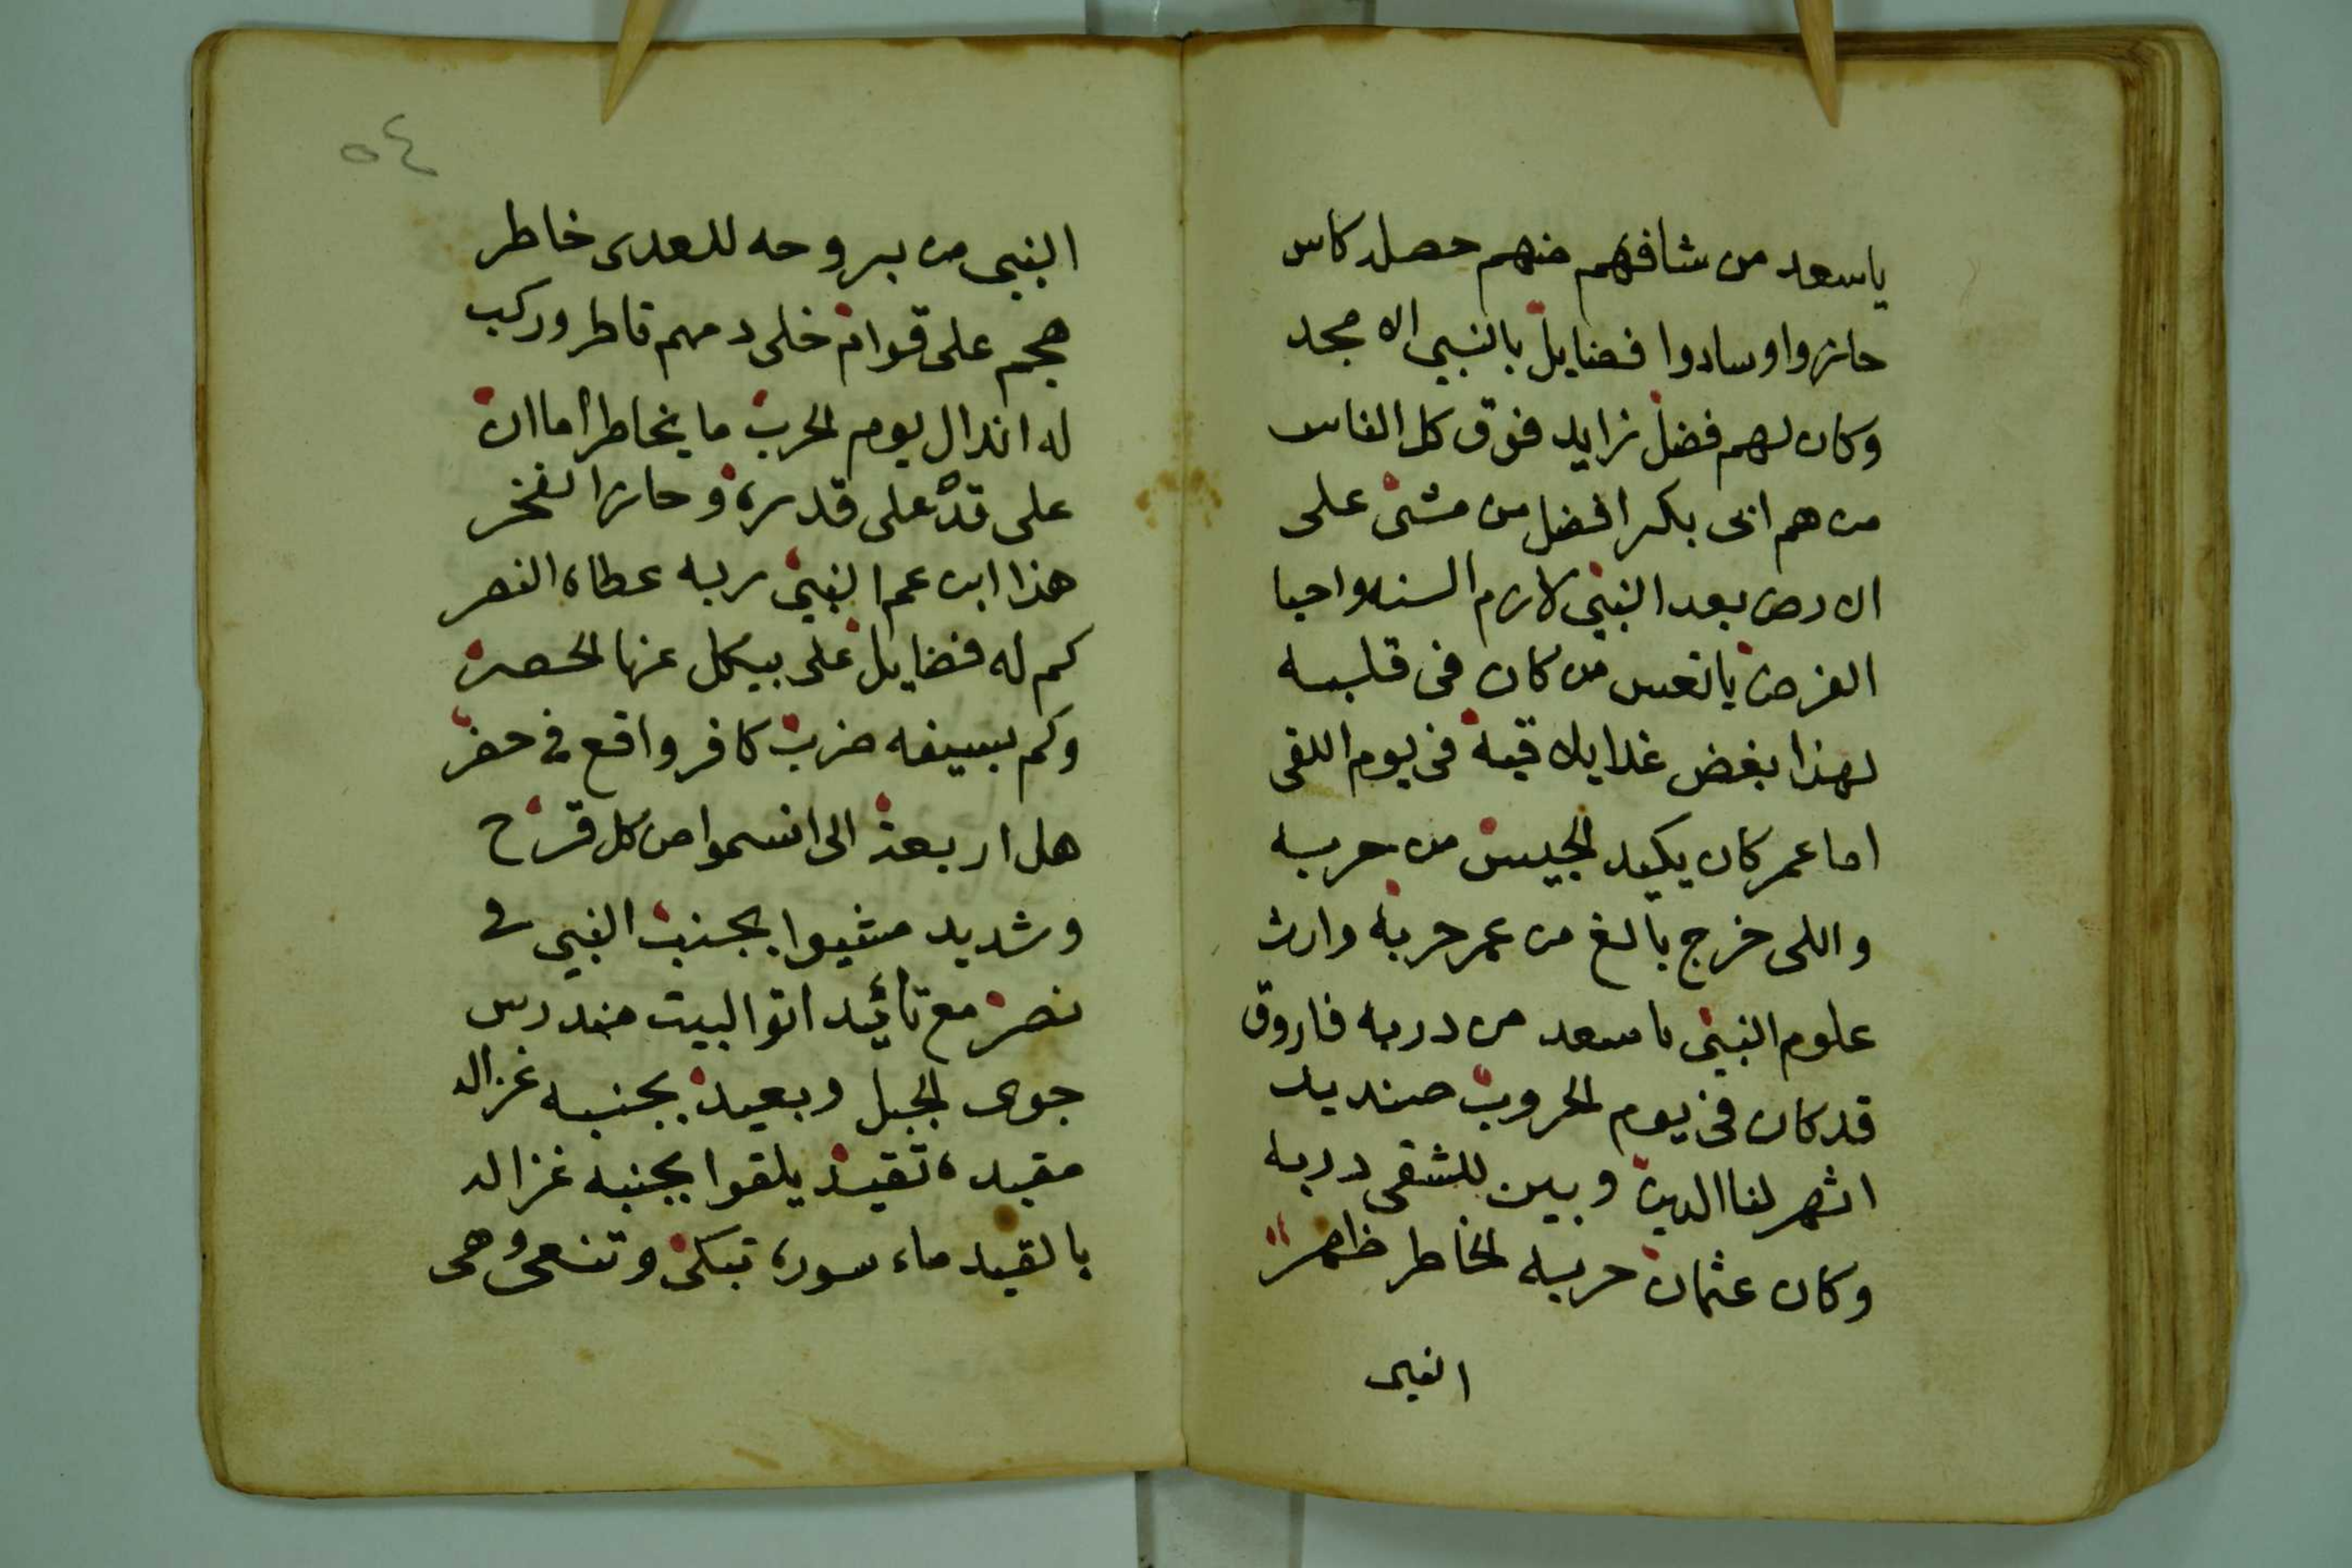 ياسعد من شافهم منهم حصل كاس
حازوا وسادوا فضايل بالنبي الامجد
وكان لهم فضل زايد فوق كل الناس
من هم ابى بكر افضل من مشى على
الارض بعد النبي لازم السنه واحيا
الفرض ياتعس من كان فى قلبه
لهذا بغض غدا يلاقيه فى يوم اللقى
اما عمر كان يكيد الجيش من حربه
واللى خرج بالغ من عمر حربه وارث
علوم النبي ياسعد من دربه فاروق
قد كان فى يوم الحروب صنديد
اشهر لنا الدين وبين للشقى دربه
وكان عثمان حربه الخاطر ظاهر
النبى
٥٤
النبي من بروحه للعدى خاطر
هجم على قوام خلى دمهم قاطر وركب
له اندال يوم الحرب ما يخاطر اما ان
على قد على قدره وحاز الفخر
هذا ابن عم النبي ربه عطاه النصر
كم له فضايل على بيكل عنها الحصر
وكم بسيفه ضرب كافر واقع فى حفر
هل اربعة الى انسموا من كل قرح
وشديد مشيوا بجنب النبي فى
نصر مع تائيد اتوا لبيت مندرس
جوى الجبل وبعيد بجنبه غزاله
مقيده تقيد يلقوا بجنبه غزاله
بالقيد ماء سوره تبكى وتنعى وهى